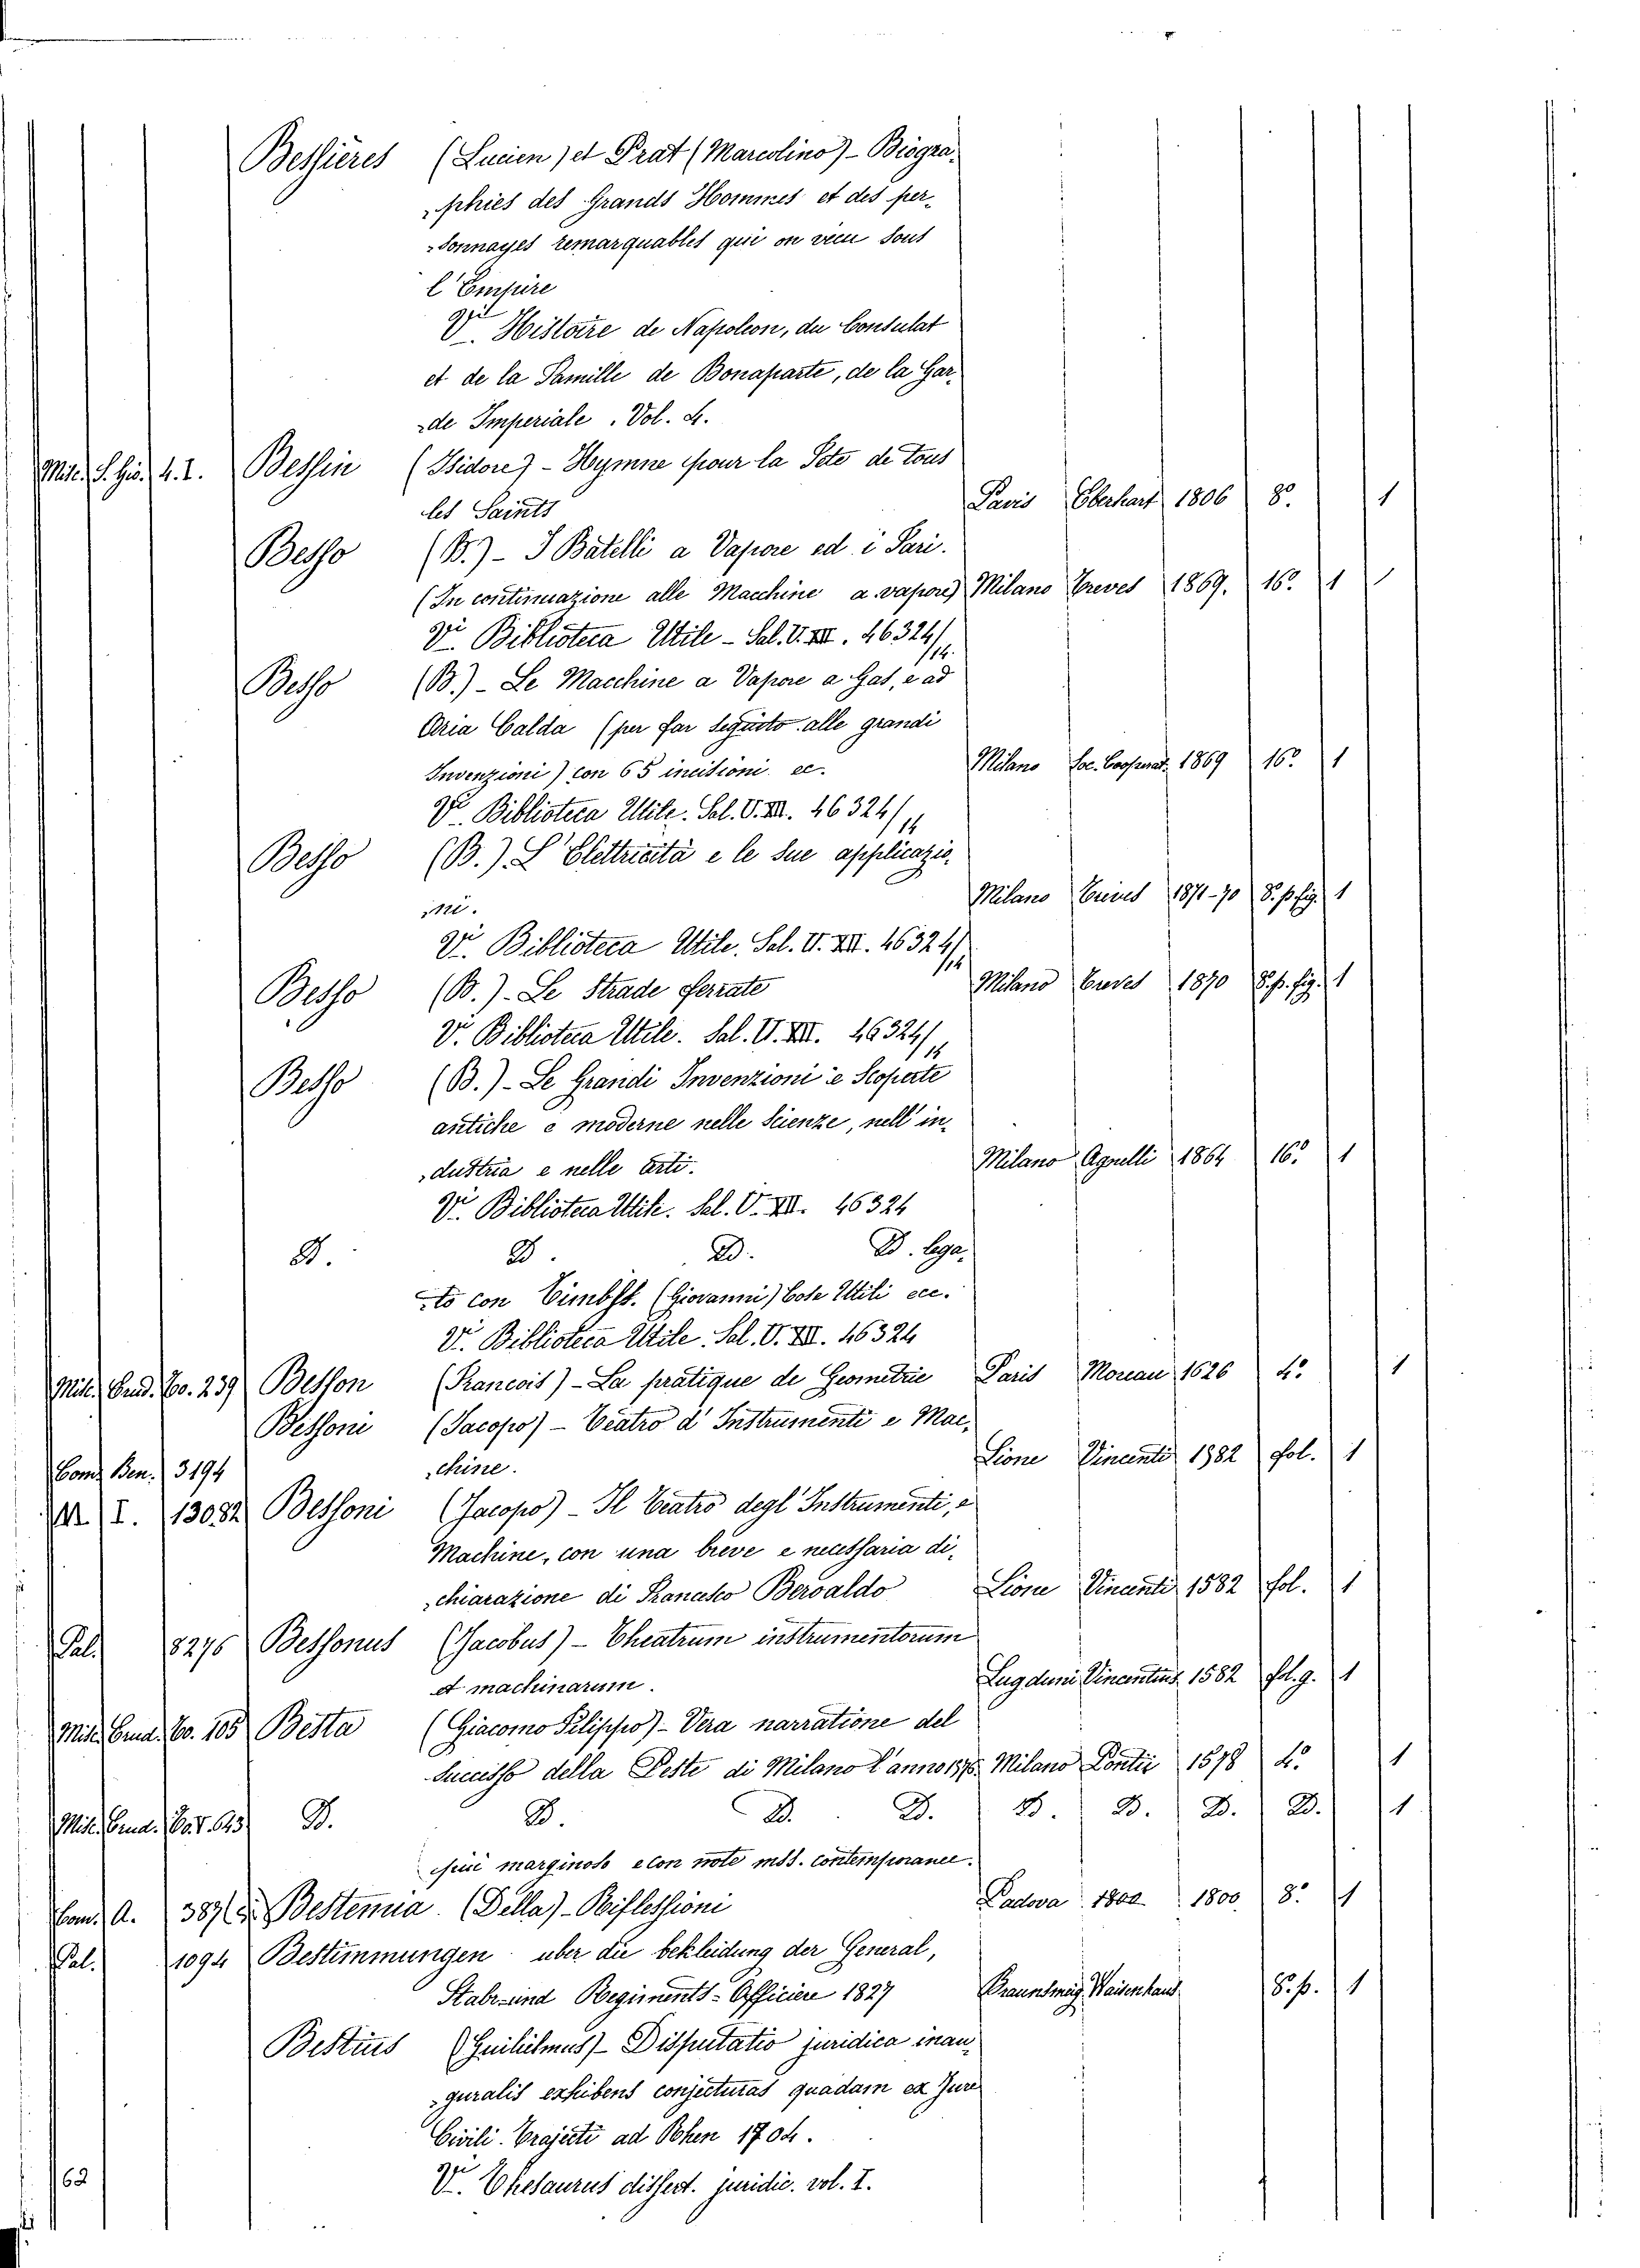 Bessières (Lucien) et Prat (Marcolino) - Biogra-
phies des Grands Hommes et des per-
sonnages remarquables qui on vecu sous
l'Empire
Vi. Histoire de Napoleon, du Consulat
et de la Famille de Bonaparte, de la Gar-
de Imperiale. Vol. 4.
Misc. S. Gio. 4. I. Bessin (Isidore) - Hymne pour la Fete de tous
les Saints Paris Eberhart 1806 8.° 1
Besso (B.) - I Batelli a Vapore ed i Fari.
(In continuazione alle Macchine a vapore) Milano Treves 1869. 16.° 1
Vi. Biblioteca Utile - Sal. V. XII. 46324/14.
Besso (B.) - Le Macchine a Vapore a Gas, e ad
Aria Calda (per far seguito alle grandi
Invenzioni) con 65 incisioni ec. Milano Soc. Cooperat. 1869 16.° 1
Vi. Biblioteca Utile. Sal. V. XII. 46324/14
Besso (B.) L'Elettricità e le sue applicazio-
ni. Milano Treves 1871-70 8. p. fig. 1
Vi. Biblioteca Utile. Sal. V. XII. 46324/14
Besso (B.) - Le Strade ferrate Milano Treves 1870 8. p. fig. 1
Vi. Biblioteca Utile. Sal. V. XII. 46324/14
Besso (B.) - Le Grandi Invenzioni e Scoperte
antiche e moderne nelle Scienze, nell'in-
dustria e nelle arti. Milano Agnelli 1864 16.° 1
Vi. Biblioteca Utile. Sal. V. XII. 46324
D. D. D. D. lega-
to con Cimbss. (Giovanni) Cose Utili ecc.
Vi. Biblioteca Utile. Sal. V. XII. 46324
Misc. Erud. Co. 239 Besson (Francois) - La pratique de Geometrie Paris Moreau 1626 4.° 1
Bessoni (Jacopo) - Teatro d'Instrumenti e Mac-
Com. Ben. 3194 chine. Lione Vincenti 1982 fol. 1
M. I. 13082 Bessoni (Jacopo) - Il Teatro degl'Instrumenti, e
Machine, con una breve e necessaria di-
chiarazione di Francesco Beroaldo Lione Vincenti 1582 fol. 1
Pal. 8276 Bessonus (Jacobus) - Theatrum instrumentorum
et machinarum. Lugduni Vincentius 1582 fol. g. 1
Misc. Erud. Co. 105 Besta (Giacomo Filippo) - Vera narratione del
Successo della Peste di Milano l'anno 1576. Milano Pontii 1578 4.° 1
Misc. Erud. Co. V. 643 D. D. D. D. D. D. D. D. 1
piú marginoso e con note mss. contemporanee.
Com. A. 387 Bestemia (Della) - Riflessioni Padova 1800 1800 8.° 1
Pal. 1094 Bestimmungen uber die bekleidung der General,
Stabs-und Regiments-Officiere 1827 Braunschweig Waisenhaus 8. p. 1
Bestius (Guilielmus) - Disputatio juridica inau-
guralis exhibens conjecturas quadam ex Jure
Civili. Trajecti ad Rhen 1704.
Vi. Thesaurus dissert. juridic. vol. I.
62